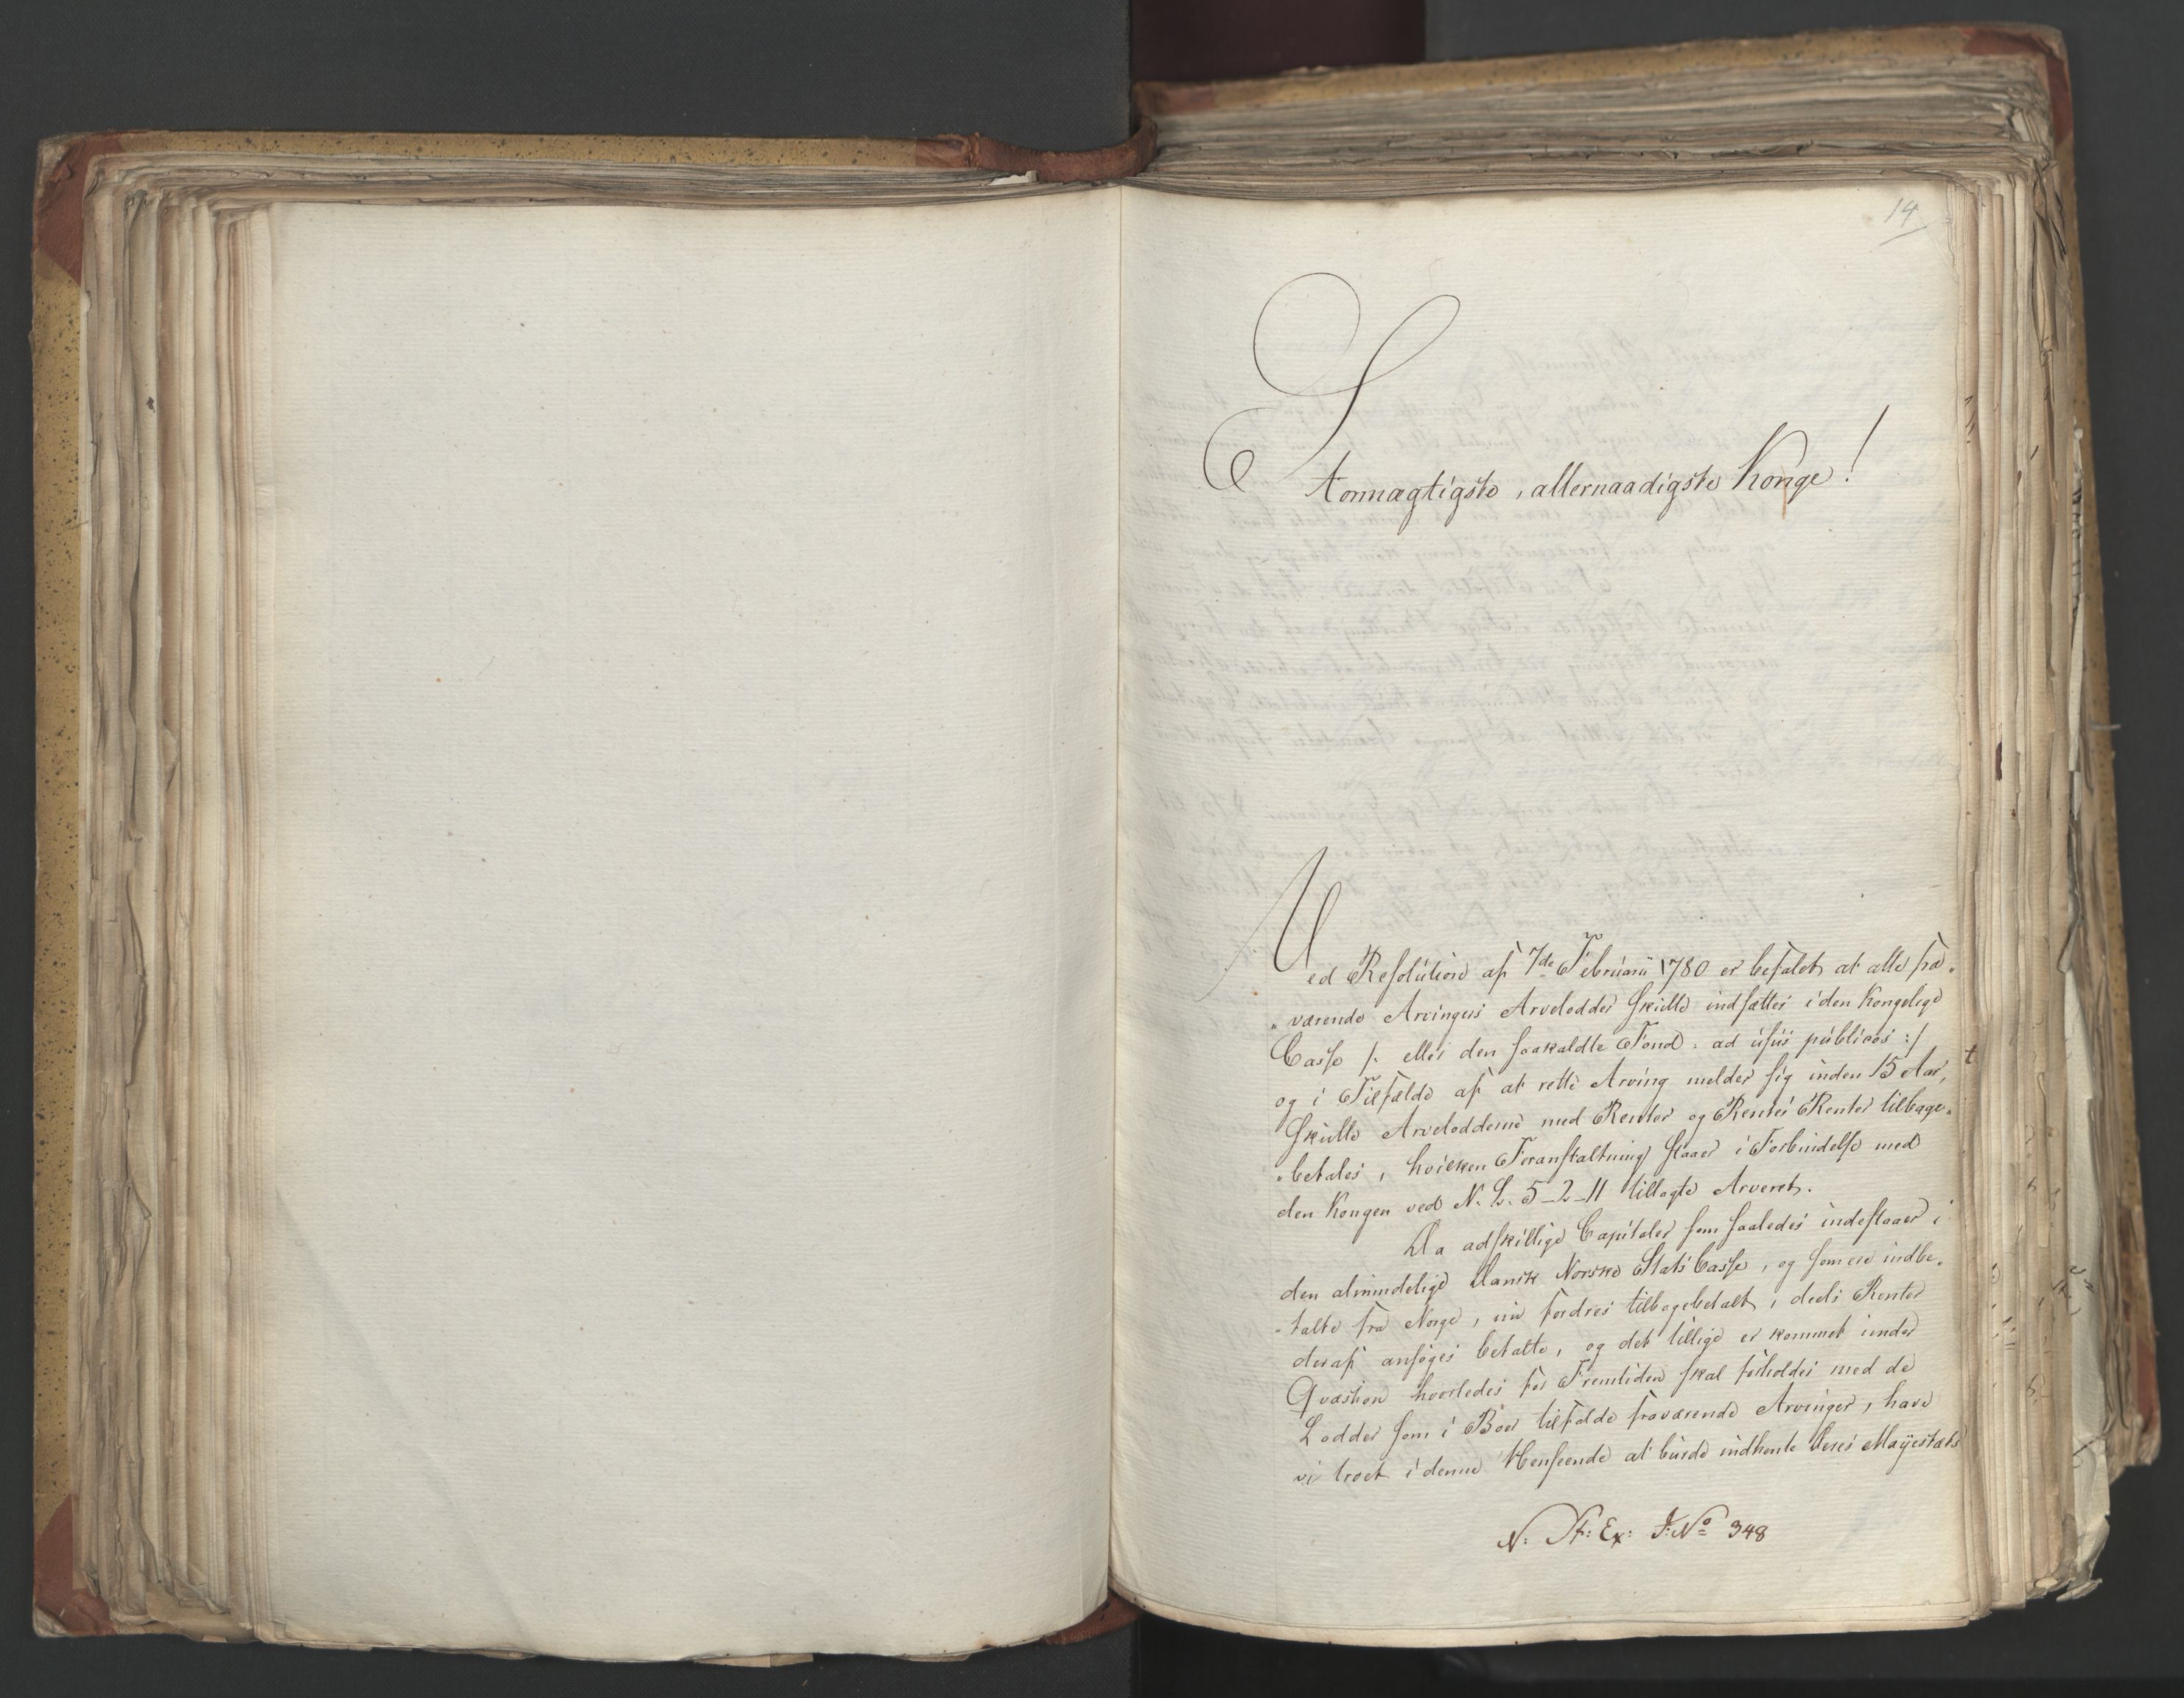 14
Stormægtigste, allernaadigste Konge!
Ved Resolution af 7de Februarii 1780 er befalet at alle fra„
„værende Arvingers Arvelodder skulle indsættes i den Kongelige
Casse /: eller den saakaldte Fond: ad usus publicos :/
og i Tilfælde af at rette Arving melder sig inden 15 Aar,
skulle Arveloddene med Renter og Rentes Renter tilbage„
„betales, hvilken Foranstaltning staaer i Forbindelse med
den Kongen ved N. L. 5-2-11 tillagte Arveret.
Da adskillige Capitaler som saaledes indestaaer i
den almindelige Dansk Norske Stats Casse, og som ere indbe„
„talte fra Norge, nu fordres tilbagebetalt, deels Renter
deraf ansøges betalte, og det tillige er kommet under
Qvæstion hvorledes for Fremtiden skal forholdes med de
Lodder som i Boer tilfalde fraværende Arvinger, have
vi troet i denne Henseende at burde indhente Deres Majestæts
N: St: Ex: J: No 348